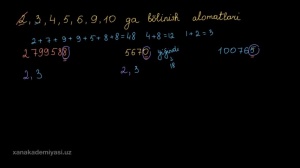 2, 3, 4, 5, 6, 9, 10 ga bölinish alomatlari
2+7+9+9+5+8+8=48 4+8=12 1+2=3
2799588 5670, yig'indi 100765
2
18
2, 3 2, 3
xanakademiyasi.uz